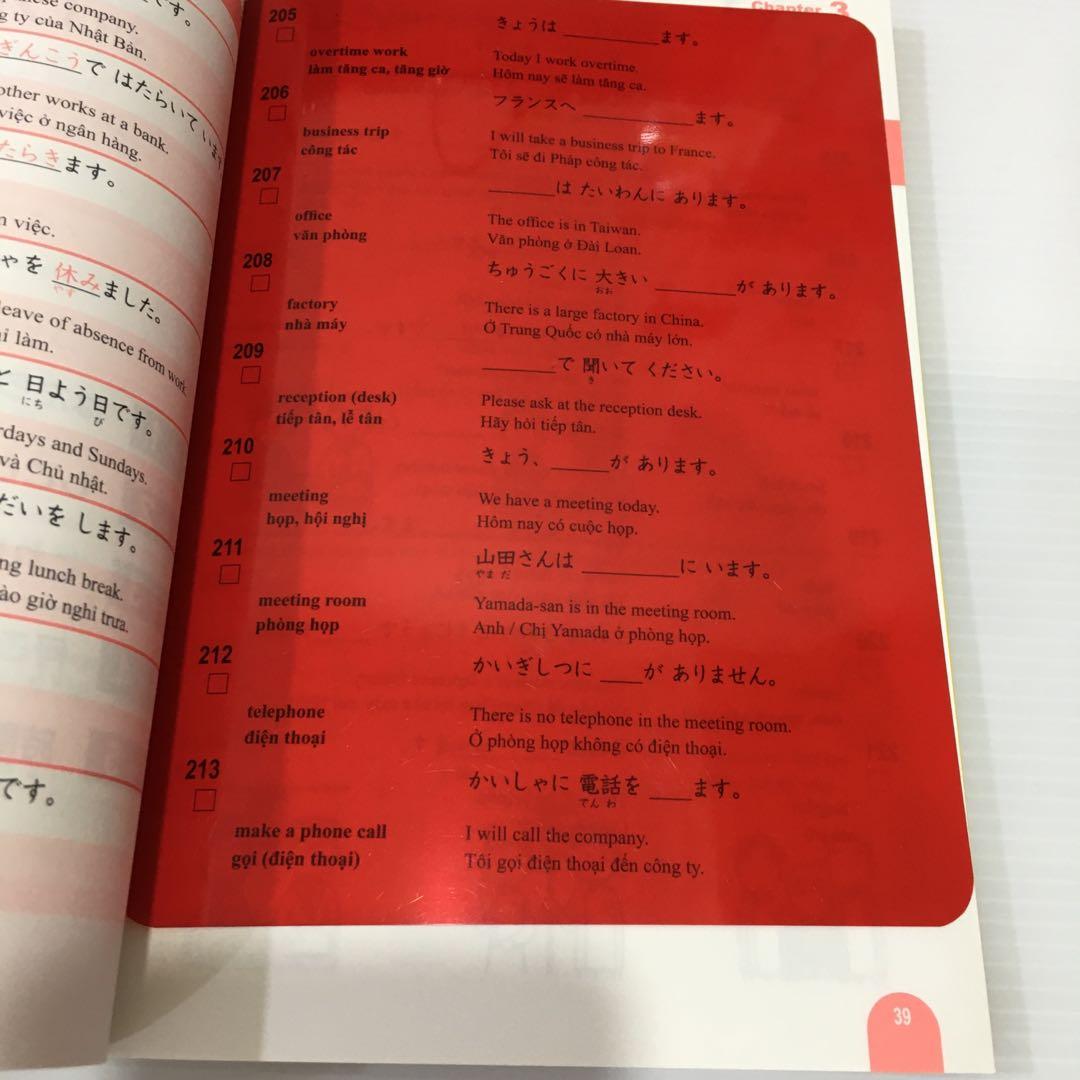 nese company.
g ty của Nhật Bản.
ぎんこうで はたらいて います
other works at a bank.
việc ở ngân hàng.
たらきます。
việc.
ゃを 休みました。
やす
leave of absence from work
làm.
と 日よう日です。
にち び
rdays and Sundays.
và Chủ nhật.
だいを します。
ng lunch break.
ào giờ nghỉ trưa.
です。
Chapter 3
205
きょうは ________ます。
overtime work
làm tăng ca, tăng giờ
Today I work overtime.
Hôm nay sẽ làm tăng ca.
206
フランスへ ________ます。
business trip
công tác
I will take a business trip to France.
Tôi sẽ đi Pháp công tác.
207
________は たいわんに あります。
office
văn phòng
The office is in Taiwan.
Văn phòng ở Đài Loan.
208
ちゅうごくに 大きい ________が あります。
おお
factory
nhà máy
There is a large factory in China.
Ở Trung Quốc có nhà máy lớn.
209
________で 聞いて ください。
き
reception (desk)
tiếp tân, lễ tân
Please ask at the reception desk.
Hãy hỏi tiếp tân.
210
きょう、______が あります。
meeting
họp, hội nghị
We have a meeting today.
Hôm nay có cuộc họp.
211
山田さんは ________に います。
やま だ
meeting room
phòng họp
Yamada-san is in the meeting room.
Anh / Chị Yamada ở phòng họp.
212
かいぎしつに ____が ありません。
telephone
điện thoại
There is no telephone in the meeting room.
Ở phòng họp không có điện thoại.
213
かいしゃに 電話を ____ます。
でん わ
make a phone call
gọi (điện thoại)
I will call the company.
Tôi gọi điện thoại đến công ty.
39